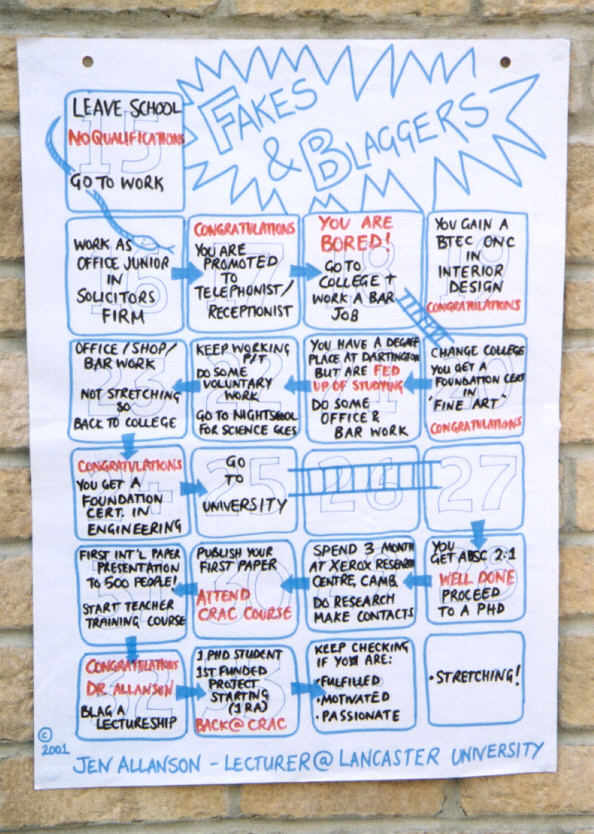 FAKES
& BLAGGERS
15
LEAVE SCHOOL
NO QUALIFICATIONS
GO TO WORK
16
WORK AS
OFFICE JUNIOR
IN
SOLICITORS
FIRM
17
CONGRATULATIONS
YOU ARE
PROMOTED
TO
TELEPHONIST/
RECEPTIONIST
18
YOU ARE
BORED!
GO TO
COLLEGE +
WORK A BAR
JOB
19
YOU GAIN A
BTEC ONC
IN
INTERIOR
DESIGN
CONGRATULATIONS
20
CHANGE COLLEGE
YOU GET A
FOUNDATION CERT
IN
"FINE ART"
CONGRATULATIONS
21
YOU HAVE A DEGREE
PLACE AT DARTINGTON
BUT ARE FED
UP OF STUDYING
DO SOME
OFFICE &
BAR WORK
22
KEEP WORKING
P/T
DO SOME
VOLUNTARY
WORK
GO TO NIGHTSCHOOL
FOR SCIENCE GCSES
23
OFFICE/SHOP/
BAR WORK
NOT STRETCHING
SO
BACK TO COLLEGE
24
CONGRATULATIONS
YOU GET A
FOUNDATION
CERT. IN
ENGINEERING
25
GO
TO
UNIVERSITY
26
27
28
YOU
GET A BSC 2:1
WELL DONE
PROCEED
TO A PHD
SPEND 3 MONTH
AT XEROX RESEARCH
CENTRE, CAMB.
DO RESEARCH
MAKE CONTACTS
30
PUBLISH YOUR
FIRST PAPER
ATTEND
CRAC COURSE
31
FIRST INT'L PAPER
PRESENTATION
TO 500 PEOPLE!
START TEACHER
TRAINING COURSE
32
CONGRATULATIONS
DR. ALLANSON
BLAG A
LECTURESHIP
33
1 PHD STUDENT
1ST FUNDED
PROJECT
STARTING
(1 RA)
BACK @ CRAC
KEEP CHECKING
IF YOU ARE:
·FULFILLED
·MOTIVATED
·PASSIONATE
·STRETCHING!
© 2001
JEN ALLANSON - LECTURER @ LANCASTER UNIVERSITY